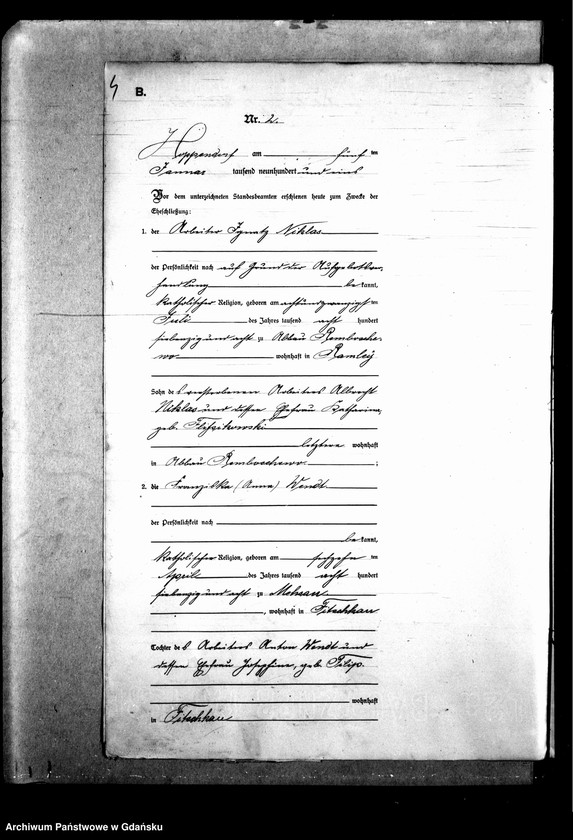 B.
Nr. 2.
Hoppendorf am fünf ten
Januar tausend neunhundert und eins
Vor dem unterzeichneten Standesbeamten erschienen heute zum Zwecke der
Eheschließung:
1. der Arbeiter Ignatz Niklas
der Persönlichkeit nach auf Grund der Aufgebotsver-
handlung be kannt,
katholischer Religion, geboren am achtundzwanzigsten
Juli des Jahres tausend acht hundert
siebenzig und acht zu Abbau
wo wohnhaft in Ramley
Sohn des verstorbenen Arbeiters Albrecht
Niklas und dessen Ehefrau Katharina,
geb.
letztere wohnhaft
in Abbau ;
2. die Franziska (Anna) Wendt
der Persönlichkeit nach
be kannt,
katholischer Religion, geboren am sechzehn ten
April des Jahres tausend acht hundert
siebenzig und acht zu
, wohnhaft in Fitschkau
Tochter des Arbeiters Anton Wendt und
dessen Ehefrau Josephine, geb.
wohnhaft
in Fitschkau
Archiwum Państwowe w Gdańsku